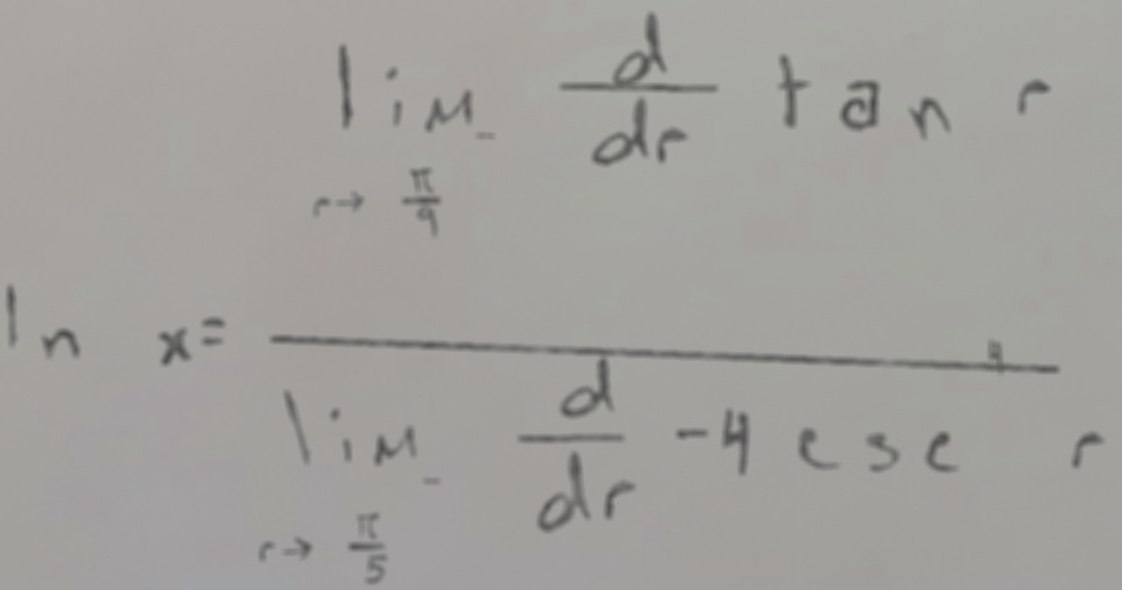 \ln x = \frac{\lim_{r \to \frac{\pi}{9}^{-}} \frac{d}{dr} \tan r}{\lim_{r \to \frac{\pi}{5}^{-}} \frac{d}{dr} -4 \csc^{4} r}